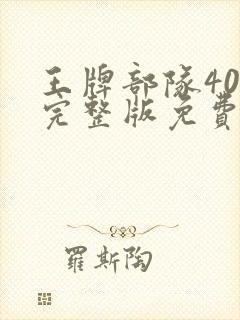 王牌部隊40
完整版免費
羅斯陶